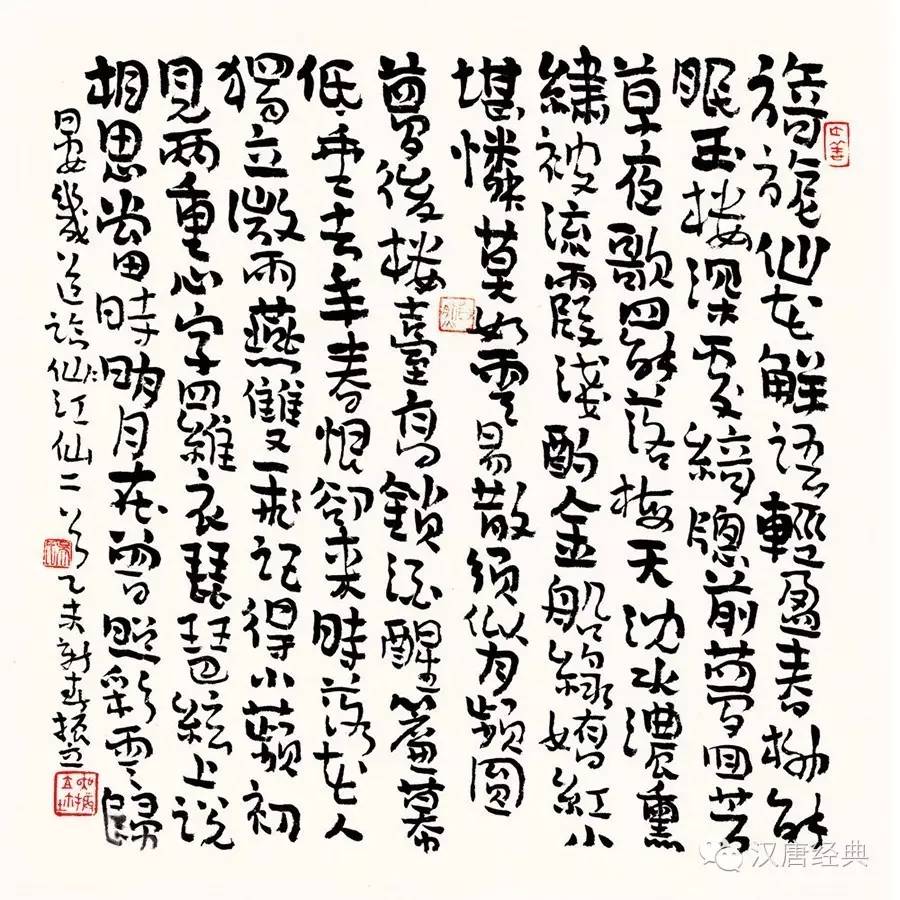 旖旎仙花解語輕盈春柳能
眠玉樓深處綺牕前夢回芳
草夜歌罷落梅天沈水濃熏
繡被流霞淺酌金船綠嬌紅小
堪憐莫如雲易散須似月頻圓
夢後樓臺高鎖酒醒簾幕
低垂去年春恨卻來時落花人
獨立微雨燕雙飛記得小蘋初
見兩重心字羅衣琵琶絃上說
相思當時明月在曾照彩雲歸
晏幾道臨仙江仙二首乙未新春振立
汉唐经典